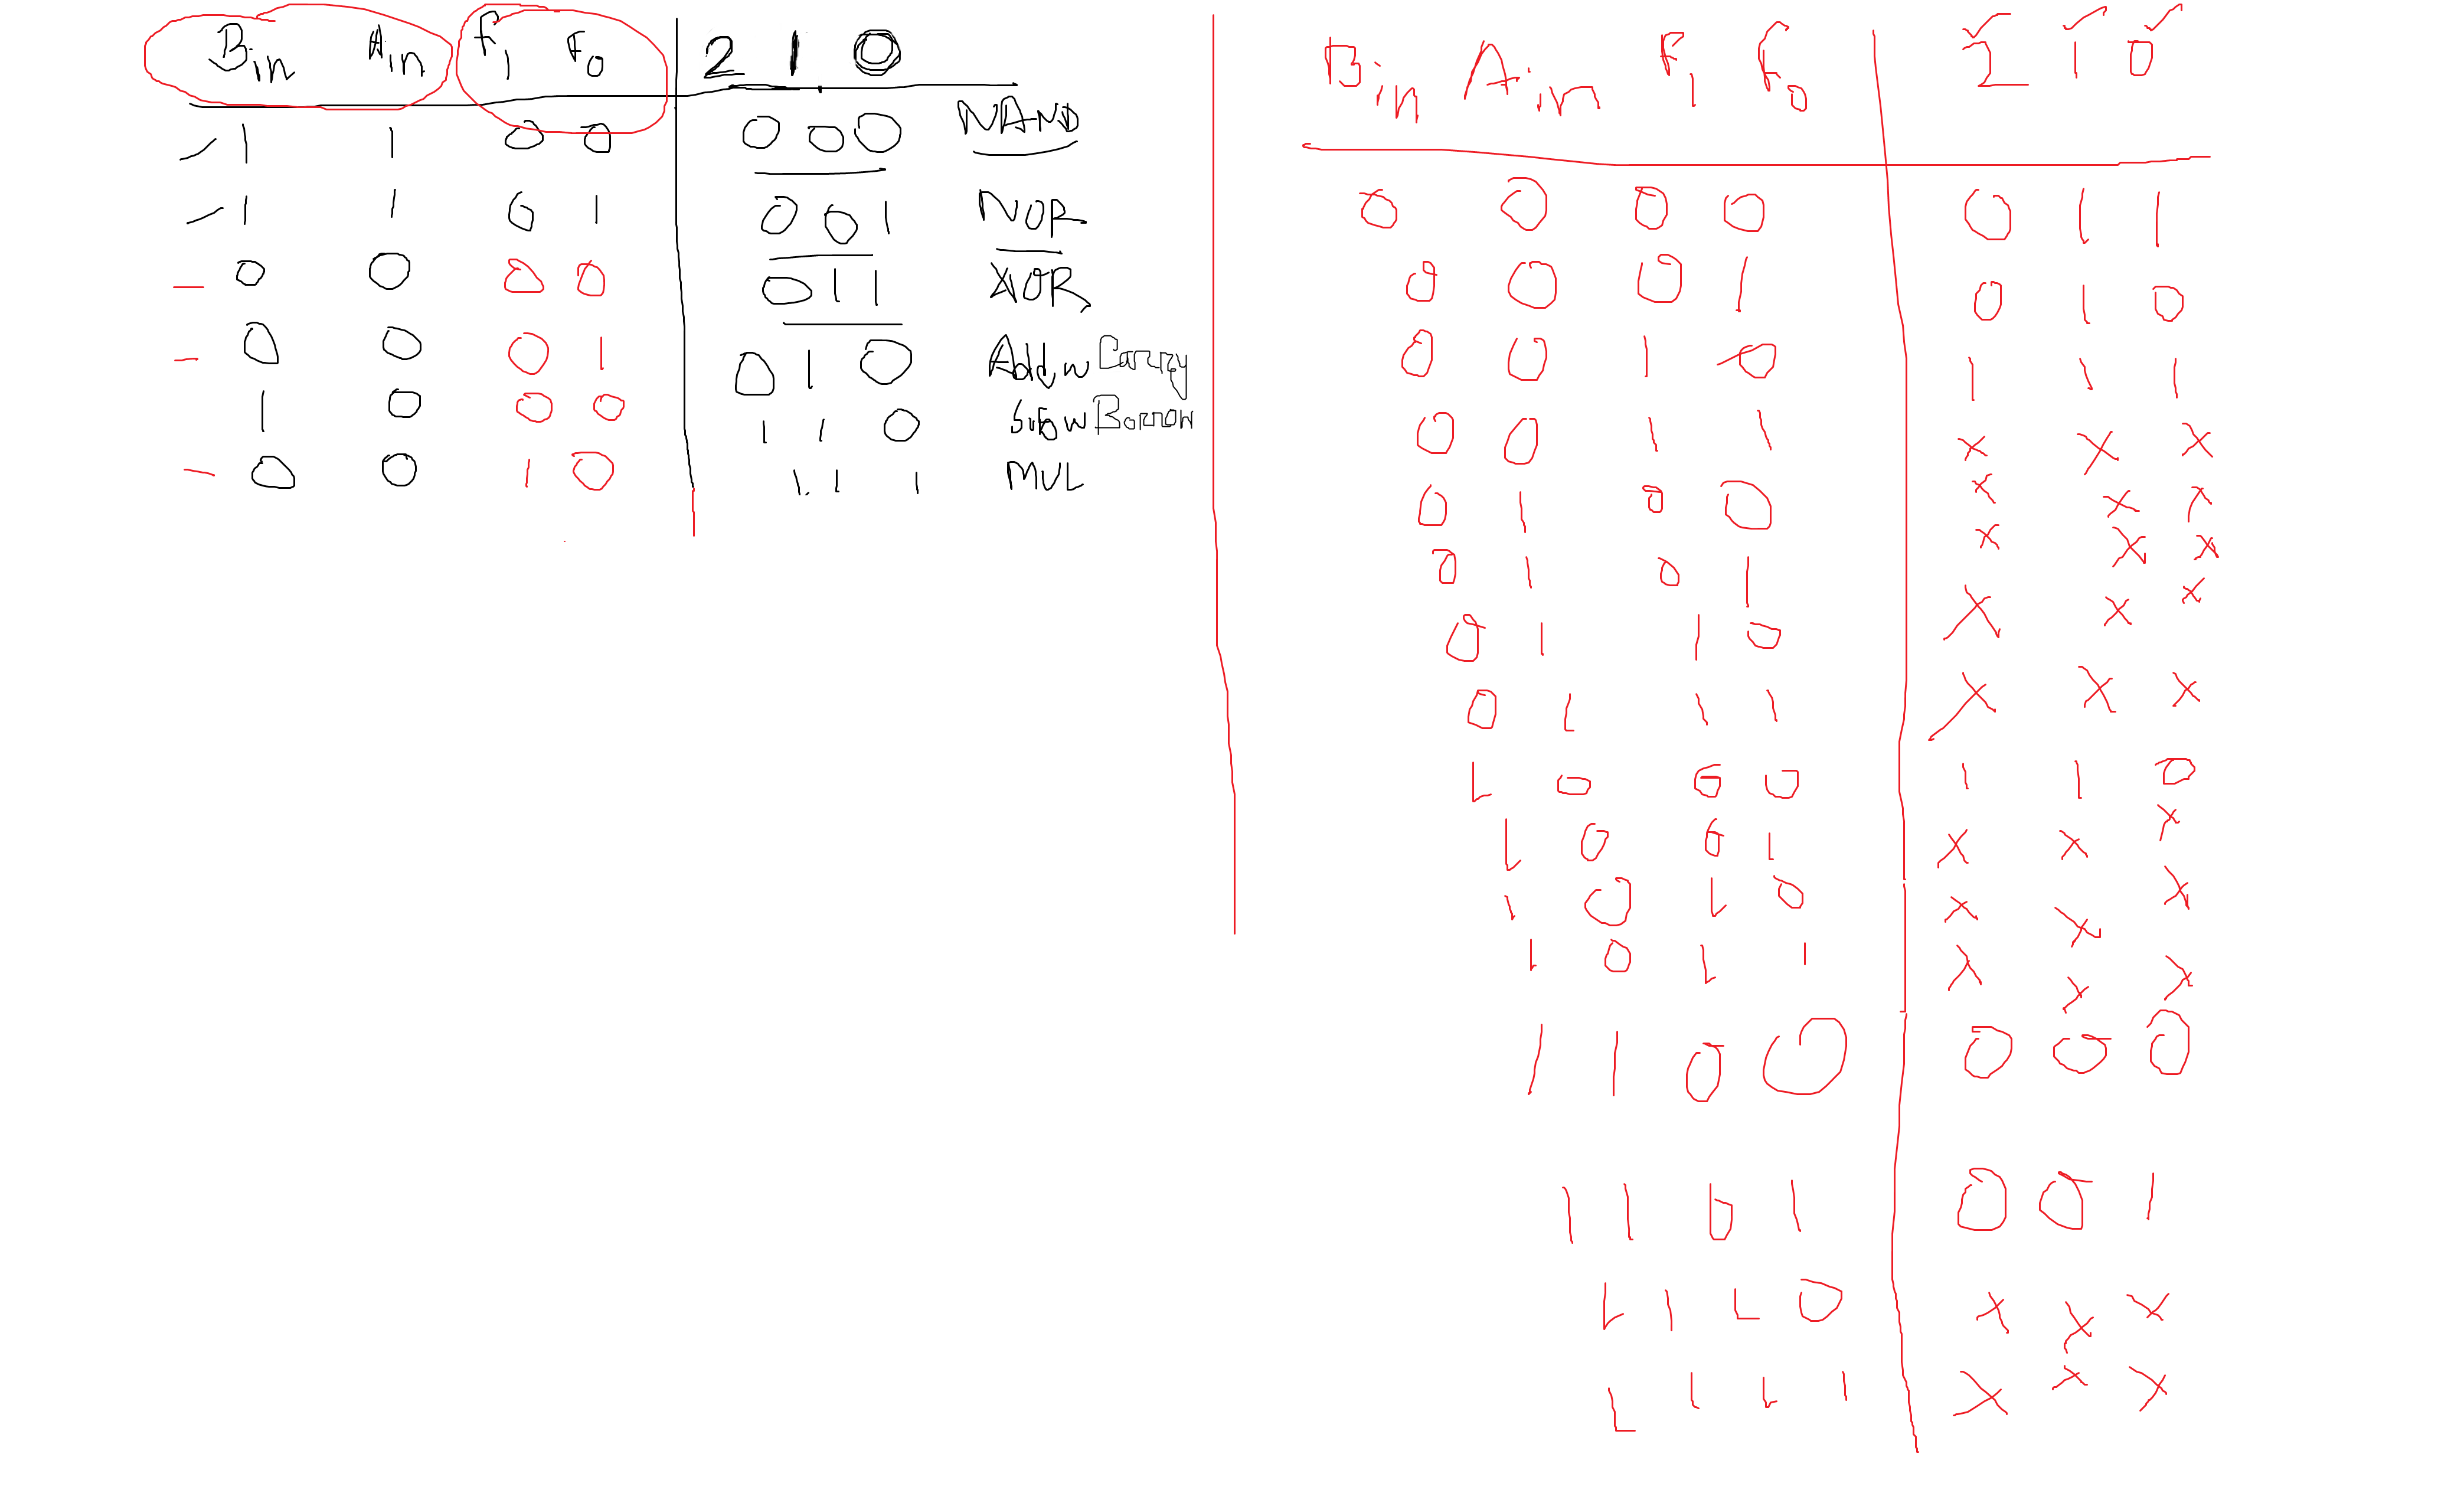 Bin Ain F1 F0 2 1 0
1 1 0 0 0 0 0 NAND
1 1 0 1 0 0 1 NOR
0 0 0 0 0 1 1 XOR
0 0 0 1 0 1 0 Add w Carry
1 0 0 0 1 1 0 Sub w Borrow
0 0 1 0 1 1 1 MUL
Bin Ain F1 F0 2 1 0
0 0 0 0 0 1 1
0 0 0 1 0 1 0
0 0 1 0 1 1 1
0 0 1 1 X X X
0 1 0 0 X X X
0 1 0 1 X X X
0 1 1 0 X X X
0 1 1 1 X X X
1 0 0 0 1 1 0
1 0 0 1 X X X
1 0 1 0 X X X
1 0 1 1 X X X
1 1 0 0 0 0 0
1 1 0 1 0 0 1
1 1 1 0 X X X
1 1 1 1 X X X